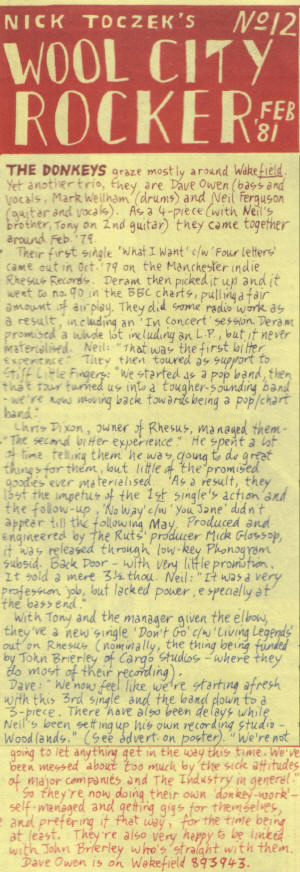 NICK TOCZEK'S No12
WOOL CITY
ROCKER FEB '81
THE DONKEYS graze mostly around Wakefield.
Yet another trio, they are Dave Owen (bass and
vocals, Mark Wellham (drums) and Neil Ferguson
(guitar and vocals). As a 4-piece (with Neil's
brother, Tony on 2nd guitar) they came together
around Feb. '79.
Their first single 'What I Want' c/w 'Four letters'
came out in Oct. '79 on the Manchester indie
Rhesus Records. Deram then picked it up and it
went to no. 90 in the BBC charts, pulling a fair
amount of airplay. They did some radio work as
a result, including an 'In Concert' session. Deram
promised a whole lot including an L.P., but it never
materialised. Neil: "That was the first bitter
experience." They then toured as support to
Stiff Little Fingers: "We started as a pop band, then
that tour turned us into a tougher-sounding band
- we're now moving back towards being a pop/chart
band."
Chris Dixon, owner of Rhesus, managed them-
"The second bitter experience." He spent a lot
of time telling them he was going to do great
things for them, but little of the promised
goodies ever materialised. "As a result, they
lost the impetus of the 1st single's action and
the follow-up, 'No Way' c/w 'You Jane' didn't
appear till the following May. Produced and
engineered by the Ruts' producer Mick Glossop,
it was released through low-key Phonogram
subsid. Back Door - with very little promotion.
It sold a mere 3½ thou. Neil: "It was a very
profession job, but lacked power, especially at
the bass end."
With Tony and the manager given the elbow,
they've a new single 'Don't Go' c/w 'Living Legends'
out on Rhesus (nominally, the thing being funded
by John Brierley of Cargo Studios - where they
do most of their recording).
Dave: "We now feel like we're starting afresh
with this 3rd single and the band down to a
3-piece. There have also been delays while
Neil's been setting up his own recording Studio -
Woodlands." (See advert. on poster). "We're not
going to let anything get in the way this time. We've
been messed about too much by the sick attitudes
of major companies and The Industry in general."
So they're now doing their own 'donkey-work' -
self-managed and getting gigs for themselves,
and prefering it that way, for the time being
at least. They're also very happy to be linked
with John Brierley who's straight with them.
Dave Owen is on Wakefield 893943.